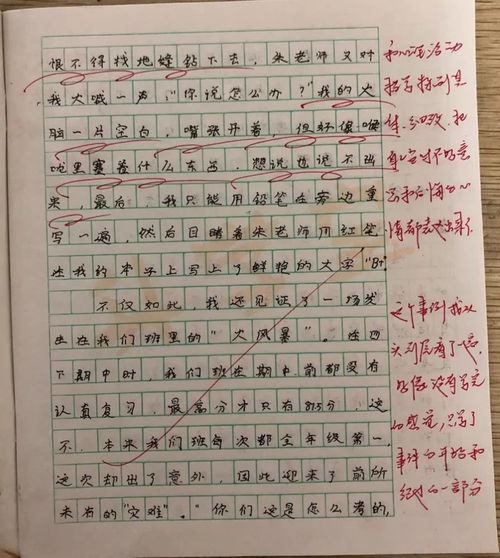 恨不得找地缝钻下去，朱老师又对
我大喊一声，“你说怎么办？”我的大
脑一片空白，嘴张开着，但好像喉
咙里塞着什么东西，想说也说不出
来，最后，我只能用铅笔在旁边重
写一遍，然后目睹着朱老师用红笔
在我的本子上写上了鲜艳的大字“B”。
不仅如此，我还见证了一场发
生在我们班里的“大风暴”。在四
下期中时，我们班在期中前都没有
认真复习，最高分才只有81.5分，这
不，本来我们班每次都全年级第一，
这次却出了意外，因此迎来了前所
未有的“灾难”。“你们这是怎么考的，
和心理活动
描写特别具
体、细致，把
自己当时不好意
思和后悔的心
情都表达出来了
这个事例我从
头到尾看了一遍，
好像没有写完
的感觉，只写了
事情的开始和
经过的一部分